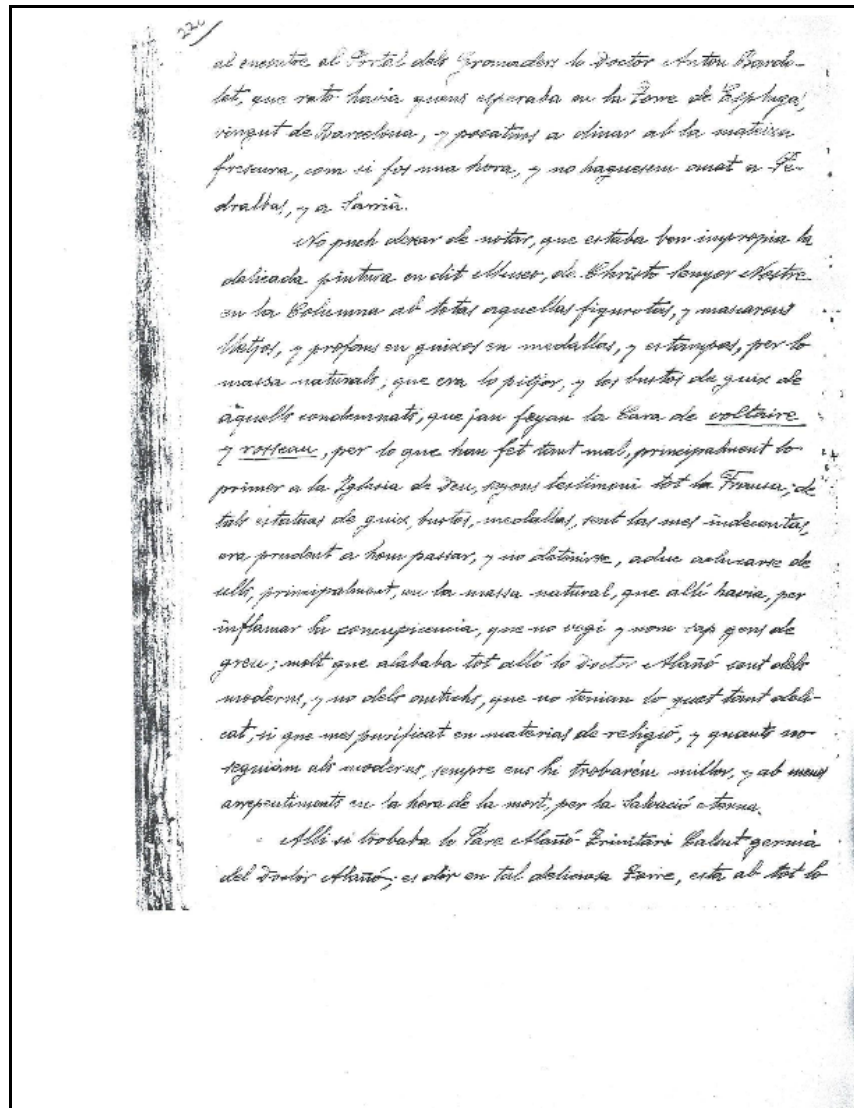 226/
al encontre al Portal dels Gromaders lo Doctor Anton Bardo-
let, que rato havia quens esperaba en la Torre de Espluga,
vingut de Barcelona, y posatnos a dinar ab la mateixa
frescura, com si fos una hora, y no haguesem anat a Pe-
dralbas, y a Sarrià.
No puch dexar de notar, que estaba ben impropia la
delicada pintura en dit Museo, de Christo Senyor Nostre
en la Columna ab totas aquellas figurotas, y mascarons
lletjos, y profans en guixos en medallas, y estampas, per lo
massa naturals, que era lo pitjor, y los bustos de guix de
aquells condemnats, que jan feyan la Cara de voltaire
y rosseau, per lo que han fet tant mal, principalment lo
primer a la Iglesia de Deu, testimoni tot la Fransa; de
tals estatuas de guix, bustos, medallas, sent las mes indecentas,
era prudent a hom passar, y no detenirse, aduc aclucarse de
ulls, principalment, en la massa natural, que allí havia, per
inflamar la concupicencia, que no vegi y nom sap gens de
greu; molt que alababa tot alló lo Doctor Alañó sent dels
moderns, y no dels antichs, que no tenian lo gust tant deli-
cat, si que mes purificat en materias de religió, y quants no
seguiàm als moderns, sempre ens hi trobarém millor, y ab menos
arrepentiments en la hora de la mort, per la Salvació eterna.
Alli si trobaba lo Pare Alañó Trinitari Calsat germá
del Doctor Alañó; es dir en tal deliciosa Torre, esta ab tot lo